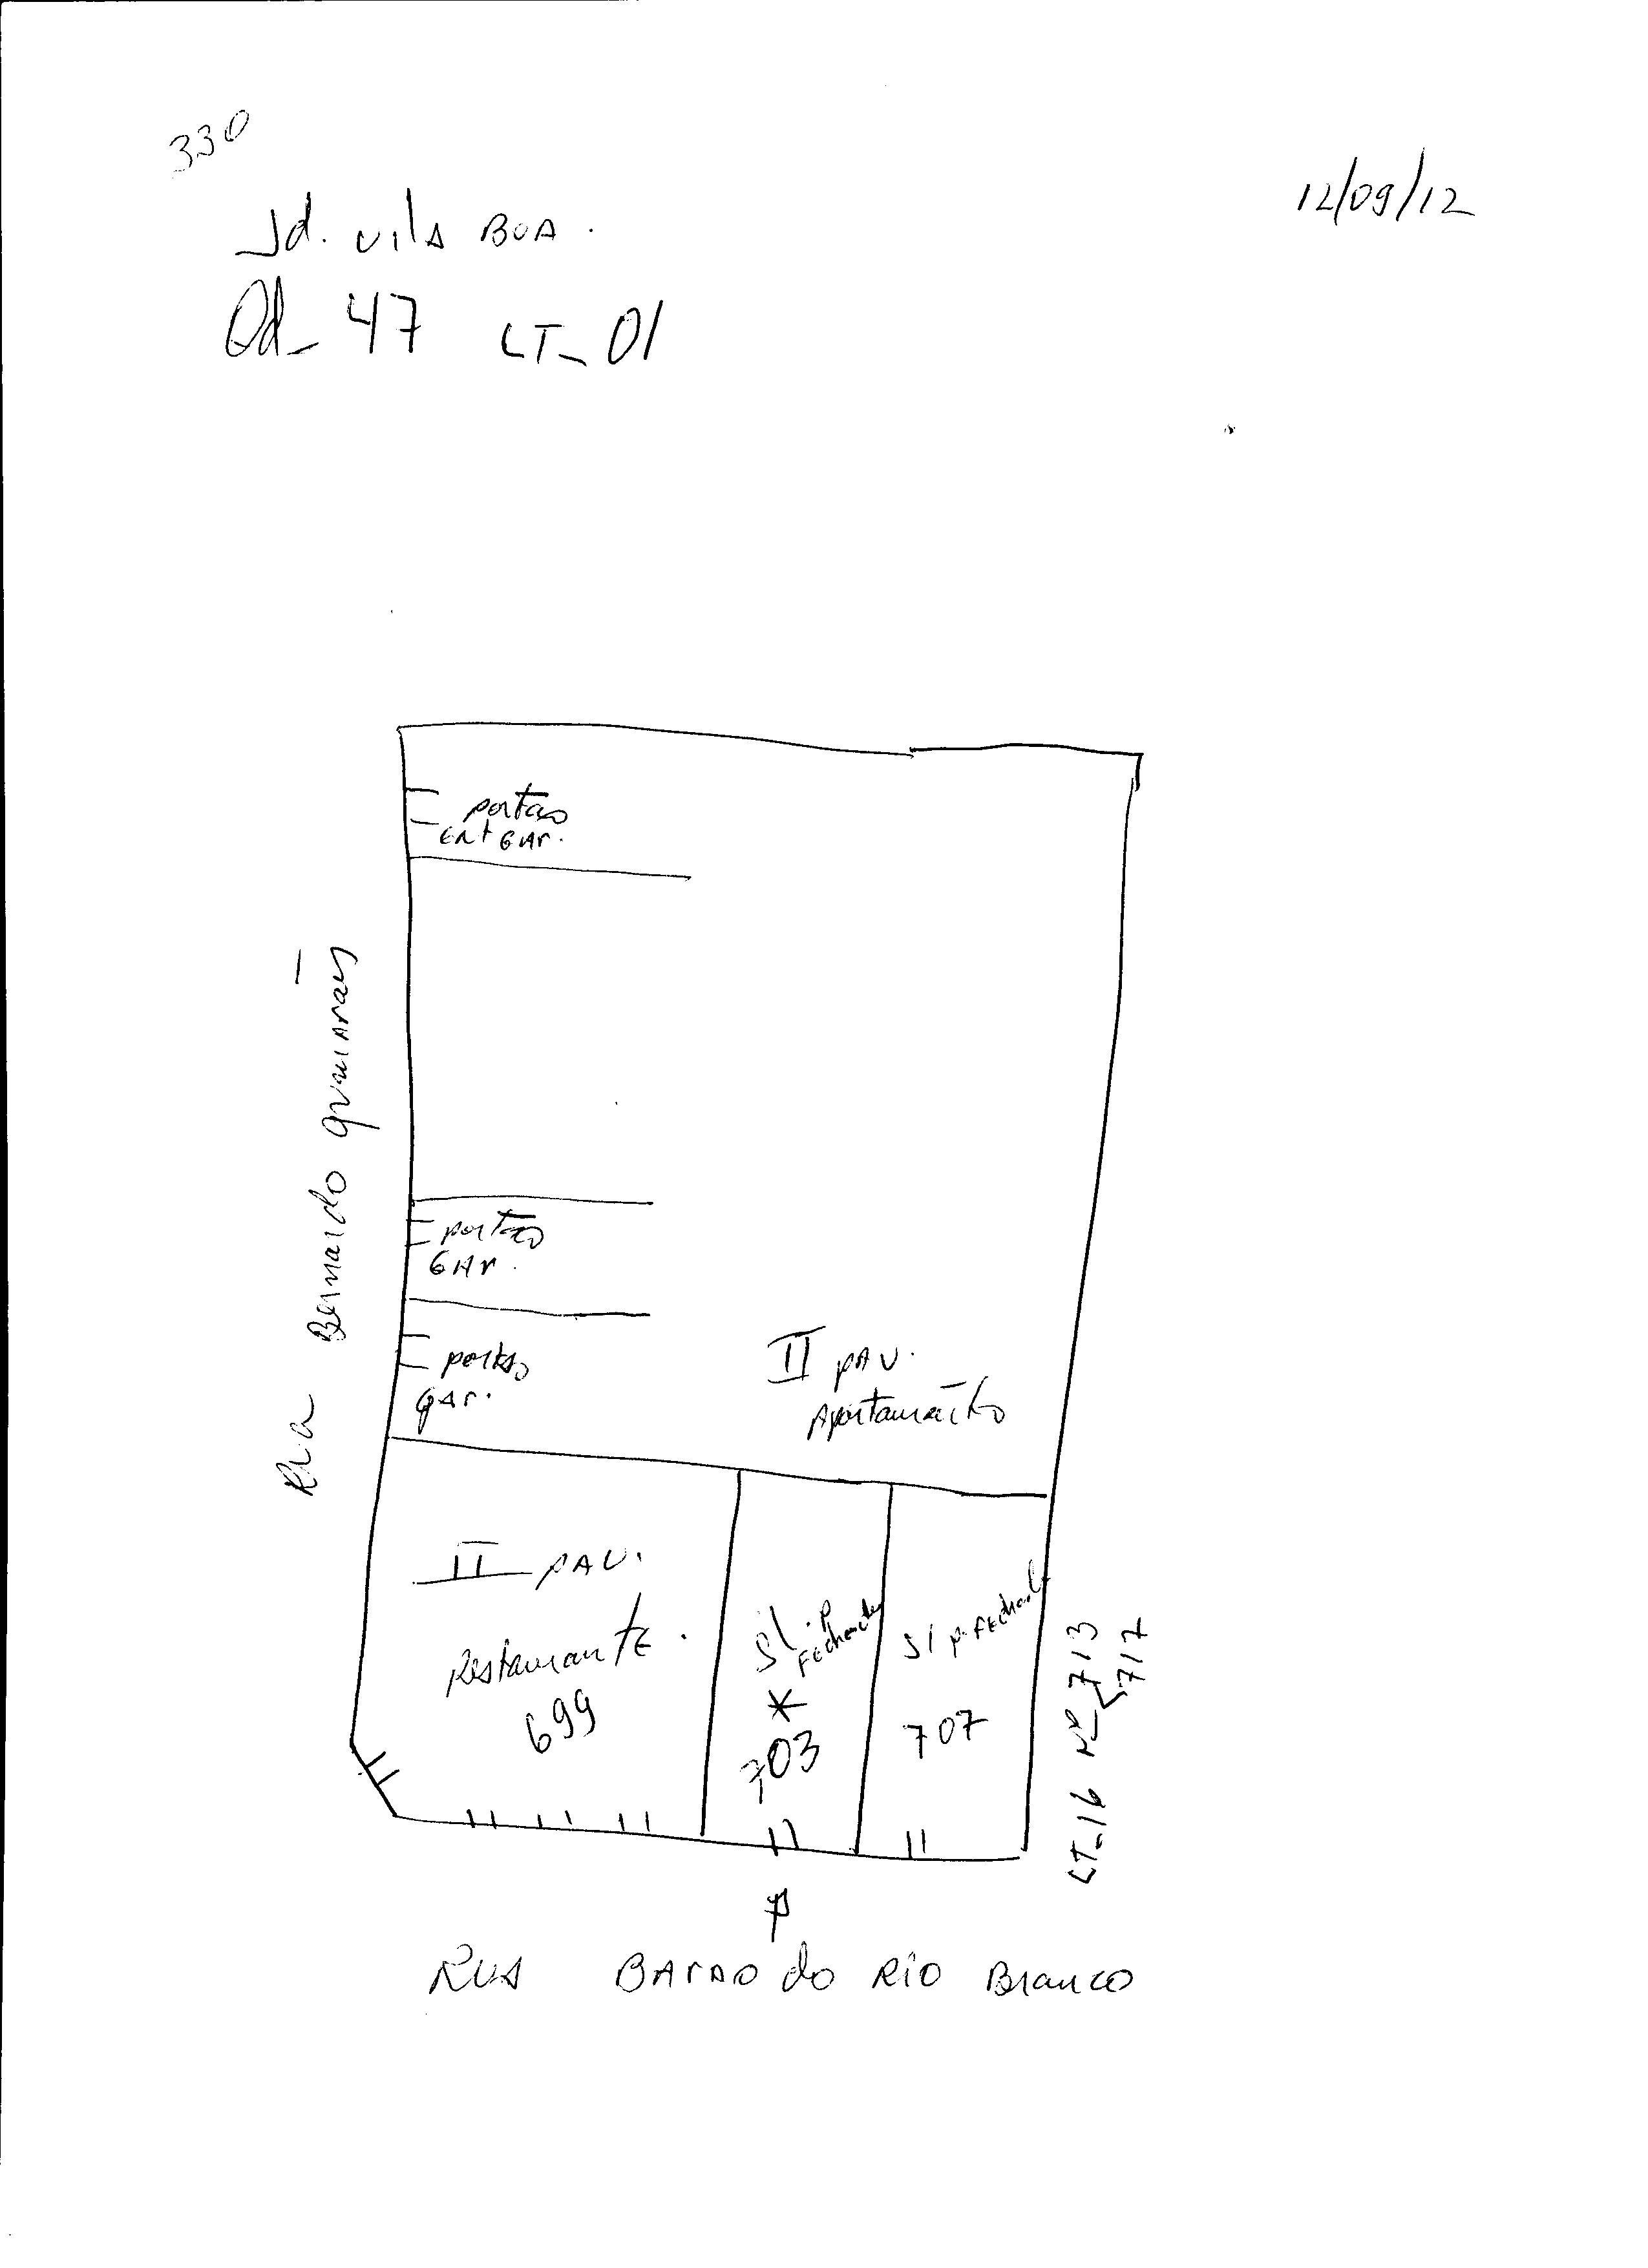 330
12/09/12
Jd. Vila BOA.
Qd_ 47 LT_ 01
portao
ent GAr.
Rua Bernardo guimarães
portao
GAr.
portao
gar.
II pav.
Apartamento
II pav.
Restaurante.
699
Sl. p
Fechada
*
703
Sl p. Fechada
707
LT_16 Nº_713
717
RUA BArAO do Rio Branco